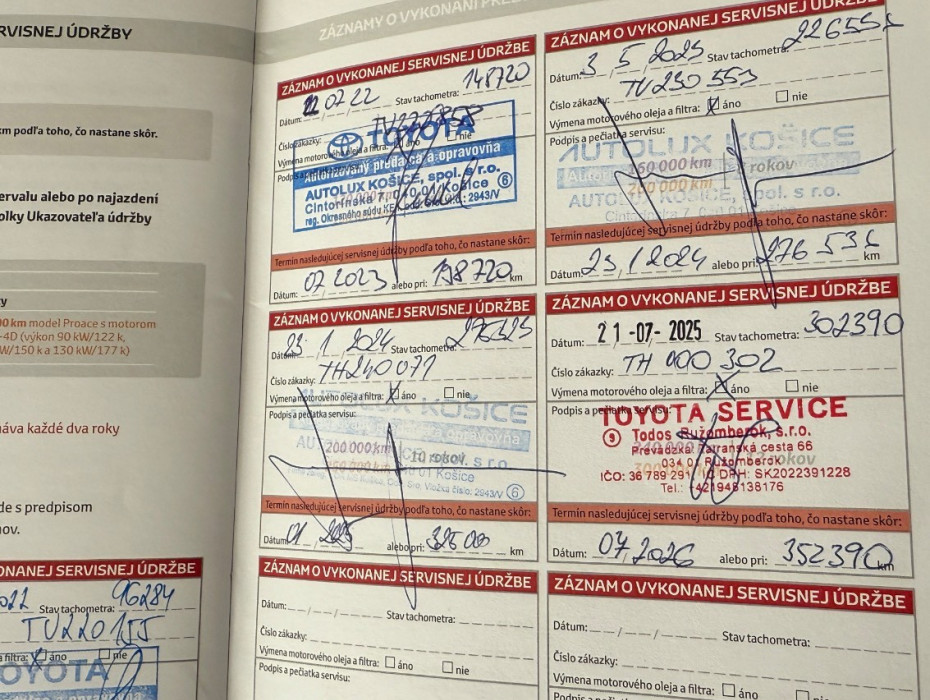 RVISNEJ ÚDRŽBY
km podľa toho, čo nastane skôr.
ervalu alebo po najazdení
olky Ukazovateľa údržby
y
00 km model Proace s motorom
-4D (výkon 90 kW/122 k,
W/150 k a 130 kW/177 k)
náva každé dva roky
de s predpisom
nov.
ONANEJ SERVISNEJ ÚDRŽBE
Stav tachometra: 96284
TU220155
filtra: áno nie
TOYOTA
ZÁZNAMY O VYKONANÍ
ZÁZNAM O VYKONANEJ SERVISNEJ ÚDRŽBE
Dátum: 07 22 Stav tachometra: 148720
Číslo zákazky:
Výmena motorového oleja a filtra: áno nie
TOYOTA
Autorizovaný predajca a opravovňa
AUTOLUX KOŠICE, spol. s r.o.
Cintorínska 7, 040 01 Košice 6
Termín nasledujúcej servisnej údržby podľa toho, čo nastane skôr:
Dátum: 07 2023 alebo pri: 198720 km
ZÁZNAM O VYKONANEJ SERVISNEJ ÚDRŽBE
Dátum: 3 / 5 / 2023 Stav tachometra:
Číslo zákazky: TU230553
Výmena motorového oleja a filtra: áno nie
Podpis a pečiatka servisu:
AUTOLUX KOŠICE
rokov
Termín nasledujúcej servisnej údržby podľa toho, čo nastane skôr:
Dátum: alebo pri: km
ZÁZNAM O VYKONANEJ SERVISNEJ ÚDRŽBE
Dátum: 23 / 1 / 2024 Stav tachometra:
Číslo zákazky: TH240071
Výmena motorového oleja a filtra: áno nie
Podpis a pečiatka servisu:
AUTOLUX KOŠICE
200.000km 10 rokov
Termín nasledujúcej servisnej údržby podľa toho, čo nastane skôr:
Dátum: 01 2025 alebo pri: km
ZÁZNAM O VYKONANEJ SERVISNEJ ÚDRŽBE
Dátum: 21 -07- 2025 Stav tachometra: 302390
Číslo zákazky: TH 000 302
Výmena motorového oleja a filtra: áno nie
Podpis a pečiatka servisu:
TOYOTA SERVICE
9 Todos Ružomberok, s.r.o.
Prevádzka Tatranská cesta 66
034 01 Ružomberok
IČO: 36 789 291 DPH: SK2022391228
Tel.: +421948138176
Termín nasledujúcej servisnej údržby podľa toho, čo nastane skôr:
Dátum: 07.2026 alebo pri: 352390 km
ZÁZNAM O VYKONANEJ SERVISNEJ ÚDRŽBE
Dátum: / / Stav tachometra:
Číslo zákazky:
Výmena motorového oleja a filtra: áno nie
Podpis a pečiatka servisu:
ZÁZNAM O VYKONANEJ SERVISNEJ ÚDRŽBE
Dátum: / / Stav tachometra:
Číslo zákazky:
Výmena motorového oleja a filtra: áno nie